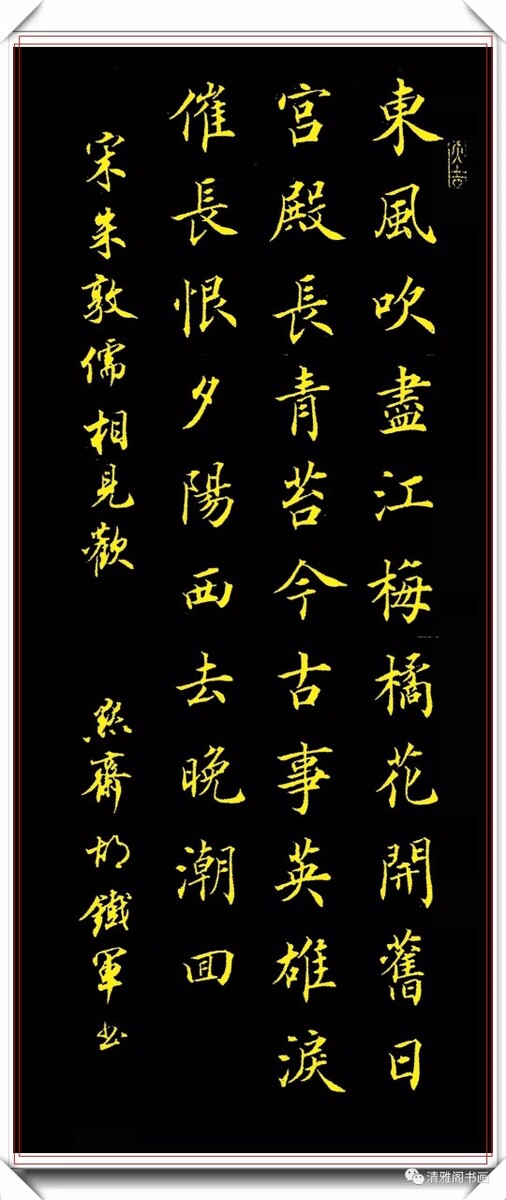 東風吹盡江梅橘花開舊日
宮殿長青苔今古事英雄淚
催長恨夕陽西去晚潮回
宋朱敦儒相見歡
齋胡鐵軍书
清雅阁书画